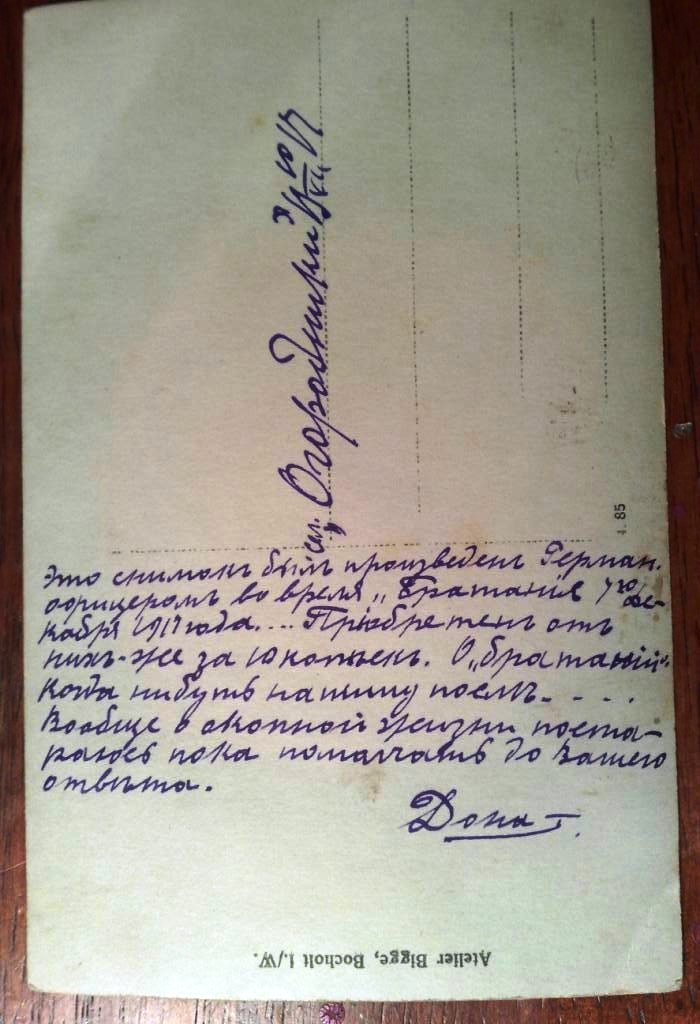 Огородникій
10/XII 17
Это снимокъ былъ произведенъ Герман.
офицеромъ во время „Братанія 7го/де-
кабря 1917 года.... Пріобретенъ отъ
нихъ-же за 10 копѣекъ. О „братаній“
когда нибуть напишу послѣ- . . . .
Вообще о окопной жизни поста-
раюсь пока помалчать до Вашего
отвѣта.
Донат
4. 85
Atelier Bigge, Bocholt i./W.